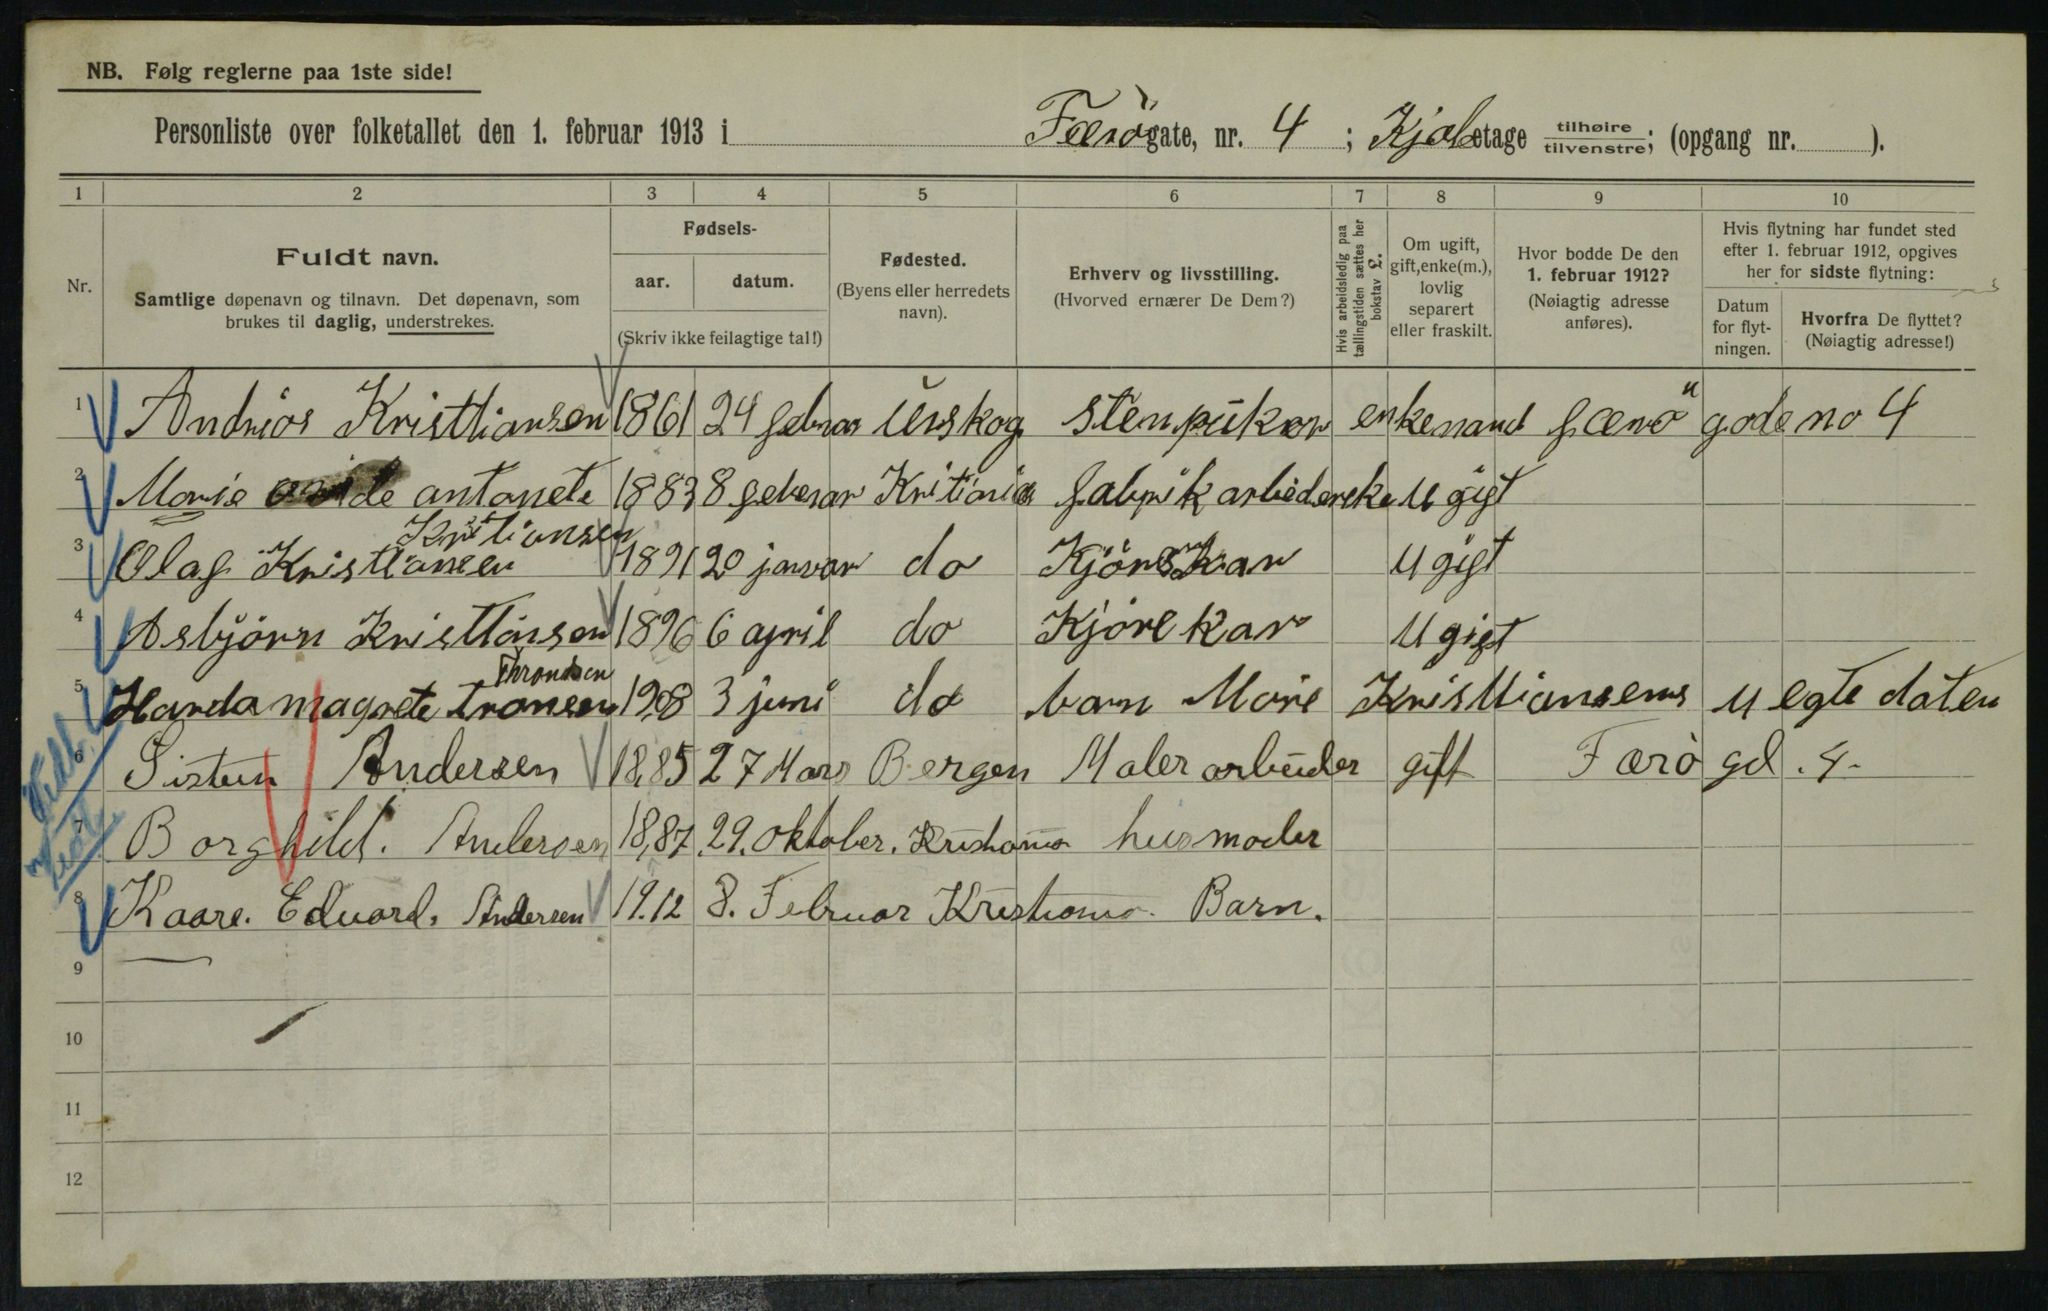 NB. Følg reglerne paa 1ste side!
Personliste over folketallet den 1. februar 1913 i Færögate, nr. 4 ; Kjeletage tilhøire tilvenstre; (opgang nr. ).
1 2 3 4 5 6 7 8 9 10
Nr.
Fuldt navn.
Samtlige døpenavn og tilnavn. Det døpenavn, som
brukes til daglig, understrekes.
Fødsels-
aar. datum.
(Skriv ikke feilagtige tal!)
Fødested.
(Byens eller herredets
navn).
Erhverv og livsstilling.
(Hvorved ernærer De Dem?)
Hvis arbeidsledig paa
tællingstiden sættes her
bokstav L.
Om ugift,
gift, enke(m.),
lovlig
separert
eller fraskilt.
Hvor bodde De den
1. februar 1912?
(Nøiagtig adresse
anføres).
Hvis flytning har fundet sted
efter 1. februar 1912, opgives
her for sidste flytning:
Datum
for flyt-
ningen.
Hvorfra De flyttet?
(Nøiagtig adresse!)
1 Kristtiansen 1861 24 Urskog enkemand færö gade no 4
2 Marie antonete 1883 8 fabrik u gift
Kristiansen
3 Olaf Kristiansen 1891 20 janvar do u gift
4 Asbjörn Kristtiansen 1896 6 april do Kjörekar u gift
Throndsen
5 magnete tronsen 1908 3 juni do barn Marie Kristtiansens u egte daten
6 Andersen 18,85 27 Mars Bergen Maler arbeider gift Færö gd. 4-
7 Borghild. Andersen 18,87 29. Oktober. Kristiania husmoder
8 Kaare. Edvard. Andersen 19.12 8. Februar Kristiania. Barn.
9
10
11
12